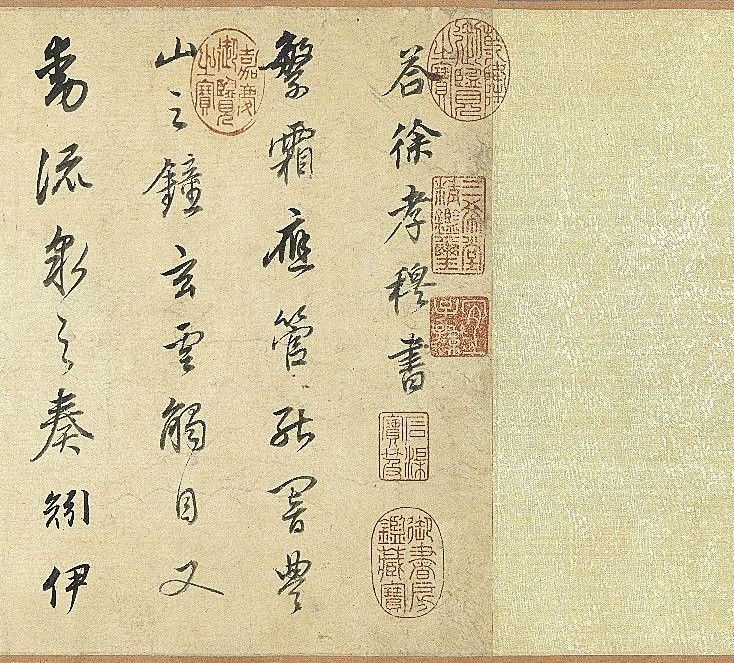 乾隆御覽之寶
三希堂精鑑璽
宜子孫
答徐孝穆書
石渠寶笈
御書房鑑藏寶
繁霜應管能響豐
嘉慶御覽之寶
山之鐘玄雲觸目又
動流泉之奏矧伊